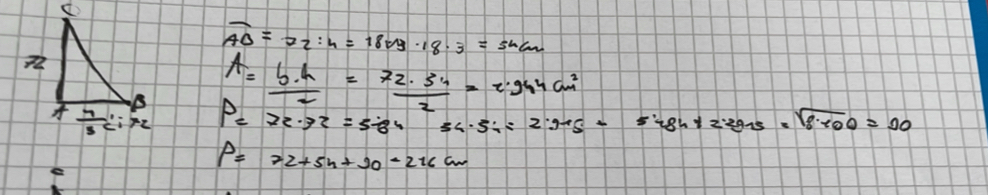 C
72
A
B
AB = 72 : 4 = 18 · 18 · 3 = 54 cm
A = b·h / 2 = 72 · 54 / 2 = 1·944 cm²
P = 72·72 = 5184 54·54 = 2·916 = 5·184 + 2·916 = √8·100 = 90
P = 72+54+90 = 216 cm